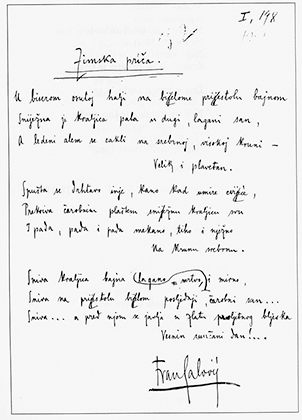 I, 198
Zimska priča.
U biserom osutoj halji na bijelome prijestolu bajnom
Sniježna je kraljica pala u dugi, lagani san,
A ledeni alem se cakli na srebrnoj, visokoj kruni –
Velik i plavetan.
Spušta se drhtavo inje, kano kad umire cvijeće,
Prekriva čarobnim plaštem sniježnu kraljicu svu
I pada, pada i pada mekano, tiho i nježno
Na krunu srebrnu.
Sniva kraljica bajna lagano i mirno,
Sniva na prijestolu bijelom posljednji, čarobni san...
Sniva... a pred njom se javlja u zlatu proljetnog blijeska
Vedrim sunčani dan...
Fran Galović